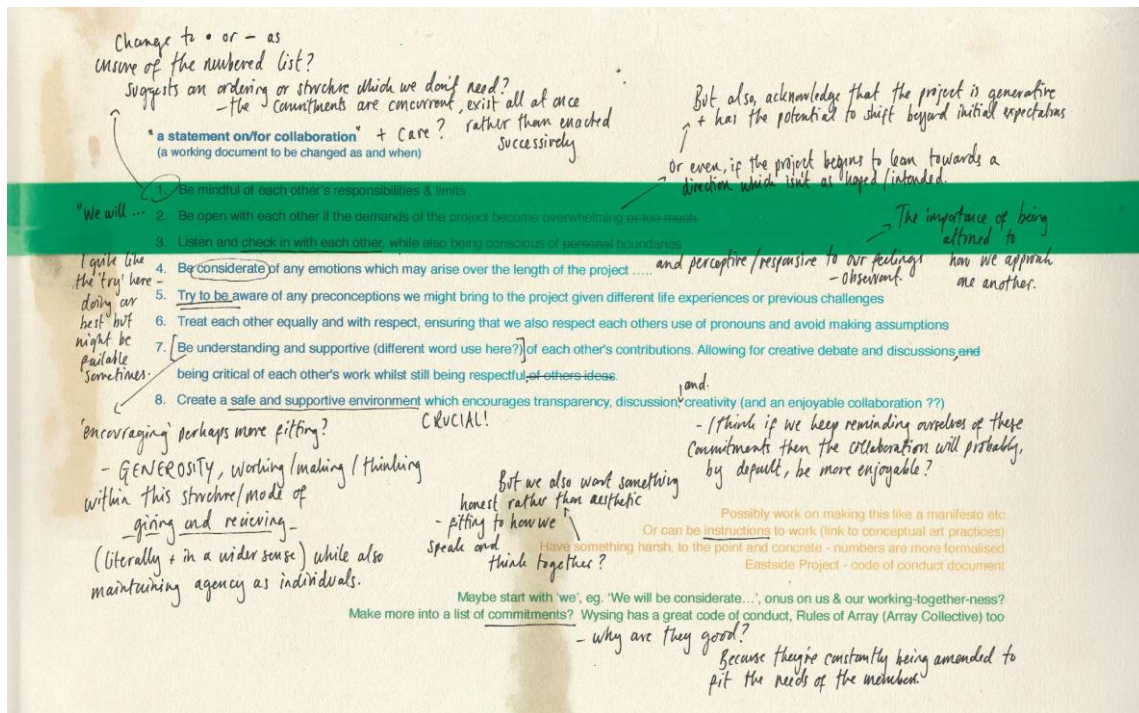 Change to • or - as
unsure of the numbered list?
suggests an ordering or structure which we don't need?
- the commitments are concurrent, exist all at once
rather than enacted
successively
"a statement on/for collaboration" + care?
(a working document to be changed as and when)
But also, acknowledge that the project is generative
+ has the potential to shift beyond initial expectations
Or even, if the project begins to lean towards a
direction which isn't as hoped/intended.
1. Be mindful of each other's responsibilities & limits
"We will ...
2. Be open with each other if the demands of the project become overwhelming or too much
3. Listen and check in with each other, while also being conscious of personal boundaries
- The importance of being
attuned to
how we approach
one another.
4. Be considerate of any emotions which may arise over the length of the project .....
and perceptive/responsive to our feelings
- observant.
I quite like
the 'try' here -
doing our
best but
might be
failable
sometimes.
5. Try to be aware of any preconceptions we might bring to the project given different life experiences or previous challenges
6. Treat each other equally and with respect, ensuring that we also respect each others use of pronouns and avoid making assumptions
7. [Be understanding and supportive (different word use here?)] of each other's contributions. Allowing for creative debate and discussions, and
being critical of each other's work whilst still being respectful of others ideas.
8. Create a safe and supportive environment which encourages transparency, discussion, and. creativity (and an enjoyable collaboration ??)
CRUCIAL!
'encouraging' perhaps more fitting?
- GENEROSITY, working/making/thinking
within this structure/mode of
giving and recieving -
(literally + in a wider sense) while also
maintaining agency as individuals.
- I think if we keep reminding ourselves of these
commitments then the collaboration will probably,
by default, be more enjoyable?
But we also want something
honest rather than aesthetic
- fitting to how we
speak and
think together?
Possibly work on making this like a manifesto etc
Or can be instructions to work (link to conceptual art practices)
Have something harsh, to the point and concrete - numbers are more formalised
Eastside Project - code of conduct document
Maybe start with 'we', eg. 'We will be considerate...', onus on us & our working-together-ness?
Make more into a list of commitments? Wysing has a great code of conduct, Rules of Array (Array Collective) too
- why are they good?
Because they're constantly being amended to
fit the needs of the members.